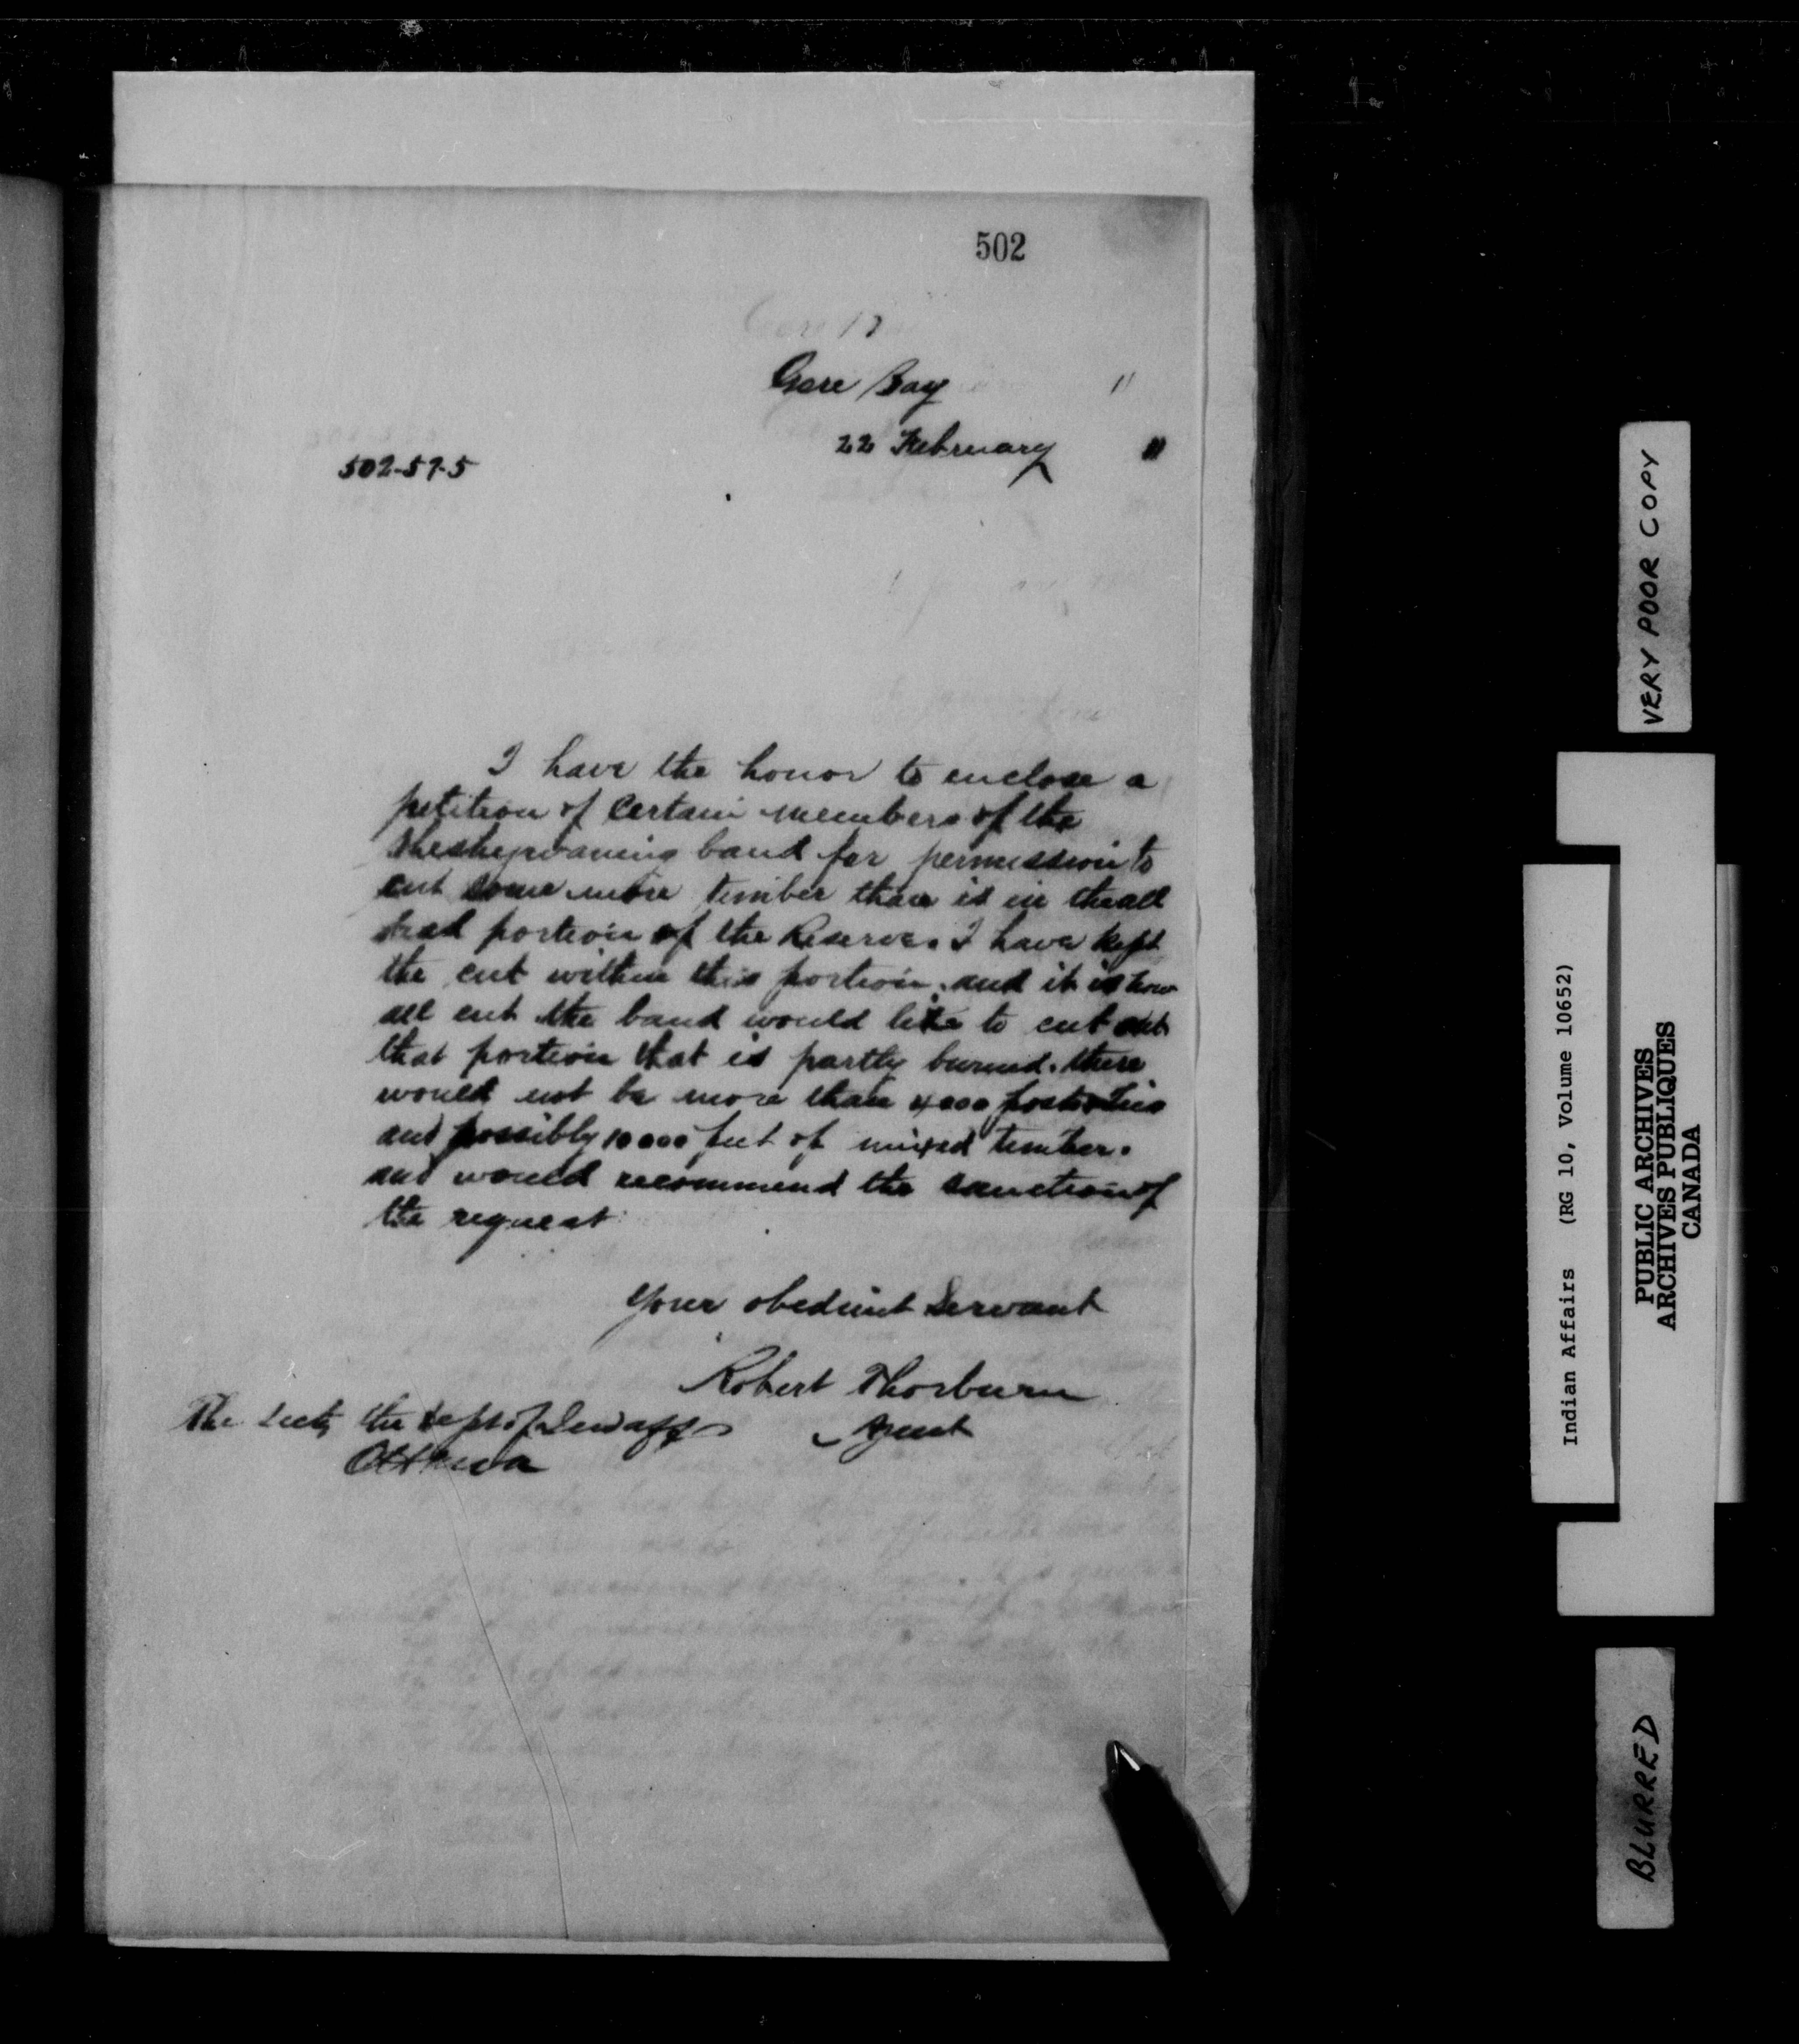 502
Gore Bay 11
22 February 11
502-57-5
I have the honor to enclose a
petition of certain members of the
Sheshegwaning band for permission to
cut some more timber than is in the all
dead portion of the Reserve. I have kept
the cut within this portion. and it is now
all cut the band would like to cut out
that portion that is partly burned. there
would not be more than 4000 posts & ties
and possibly 10000 feet of mixed timber.
and would recommend the sanction of
the request
Your obedient Servant
Robert Thorburn
Agent
The Secty the Dept of Ind affs
Ottawa
VERY POOR COPY
Indian Affairs (RG 10, Volume 10652)
PUBLIC ARCHIVES
ARCHIVES PUBLIQUES
CANADA
BLURRED